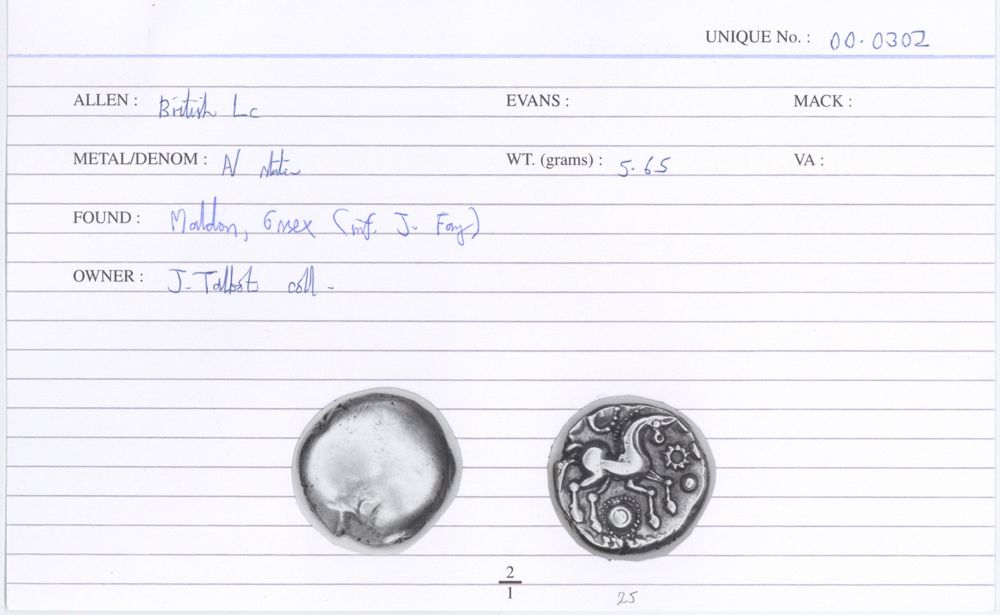 UNIQUE No. : 00.0302
ALLEN : British Lc EVANS : MACK :
METAL/DENOM : A/ WT. (grams) : 5.65 VA :
FOUND : Maldon, Essex (inf. J. Fay)
OWNER : J. Talbot coll.
2
1
25